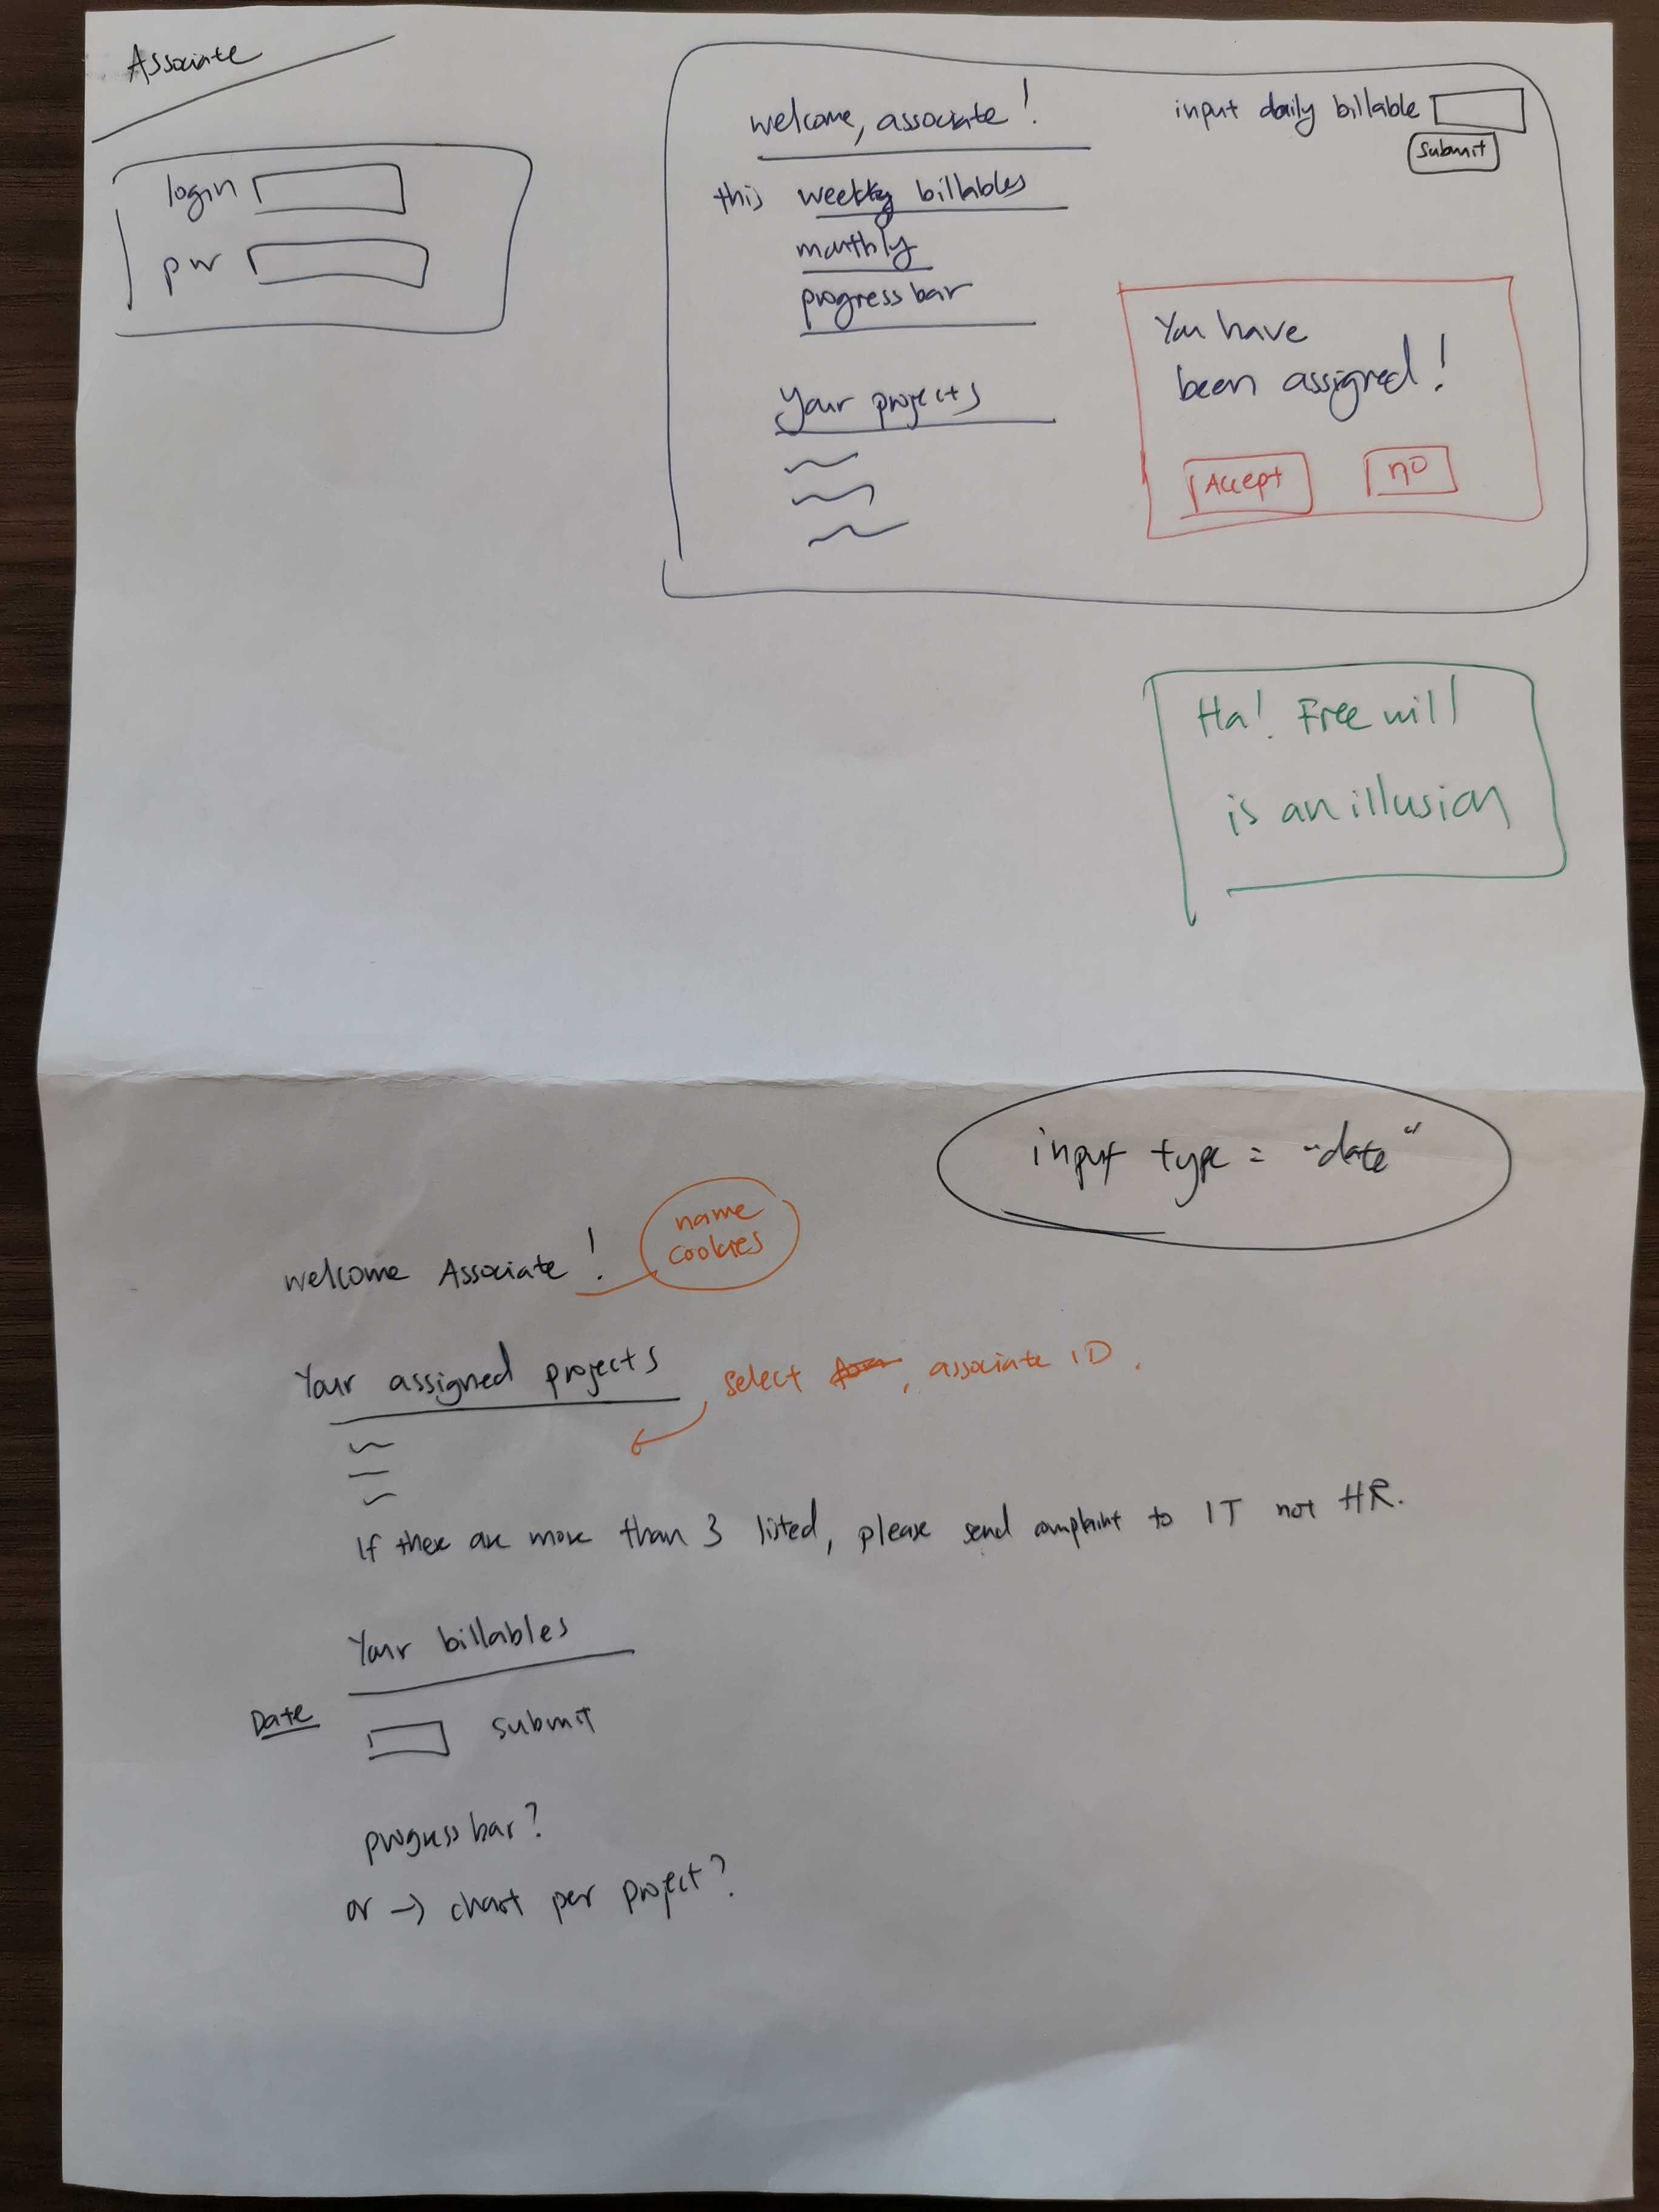 Associate
login
pw
welcome, associate!
input daily billable
submit
this weekly billables
monthly
progress bar
Your projects
You have
been assigned!
Accept
no
Ha! Free will
is an illusion
input type = "date"
name
cookies
welcome Associate!
Your assigned projects
select , associate ID.
If there are more than 3 listed, please send complaint to IT not HR.
Your billables
Date
submit
progress bar?
or → chart per project?